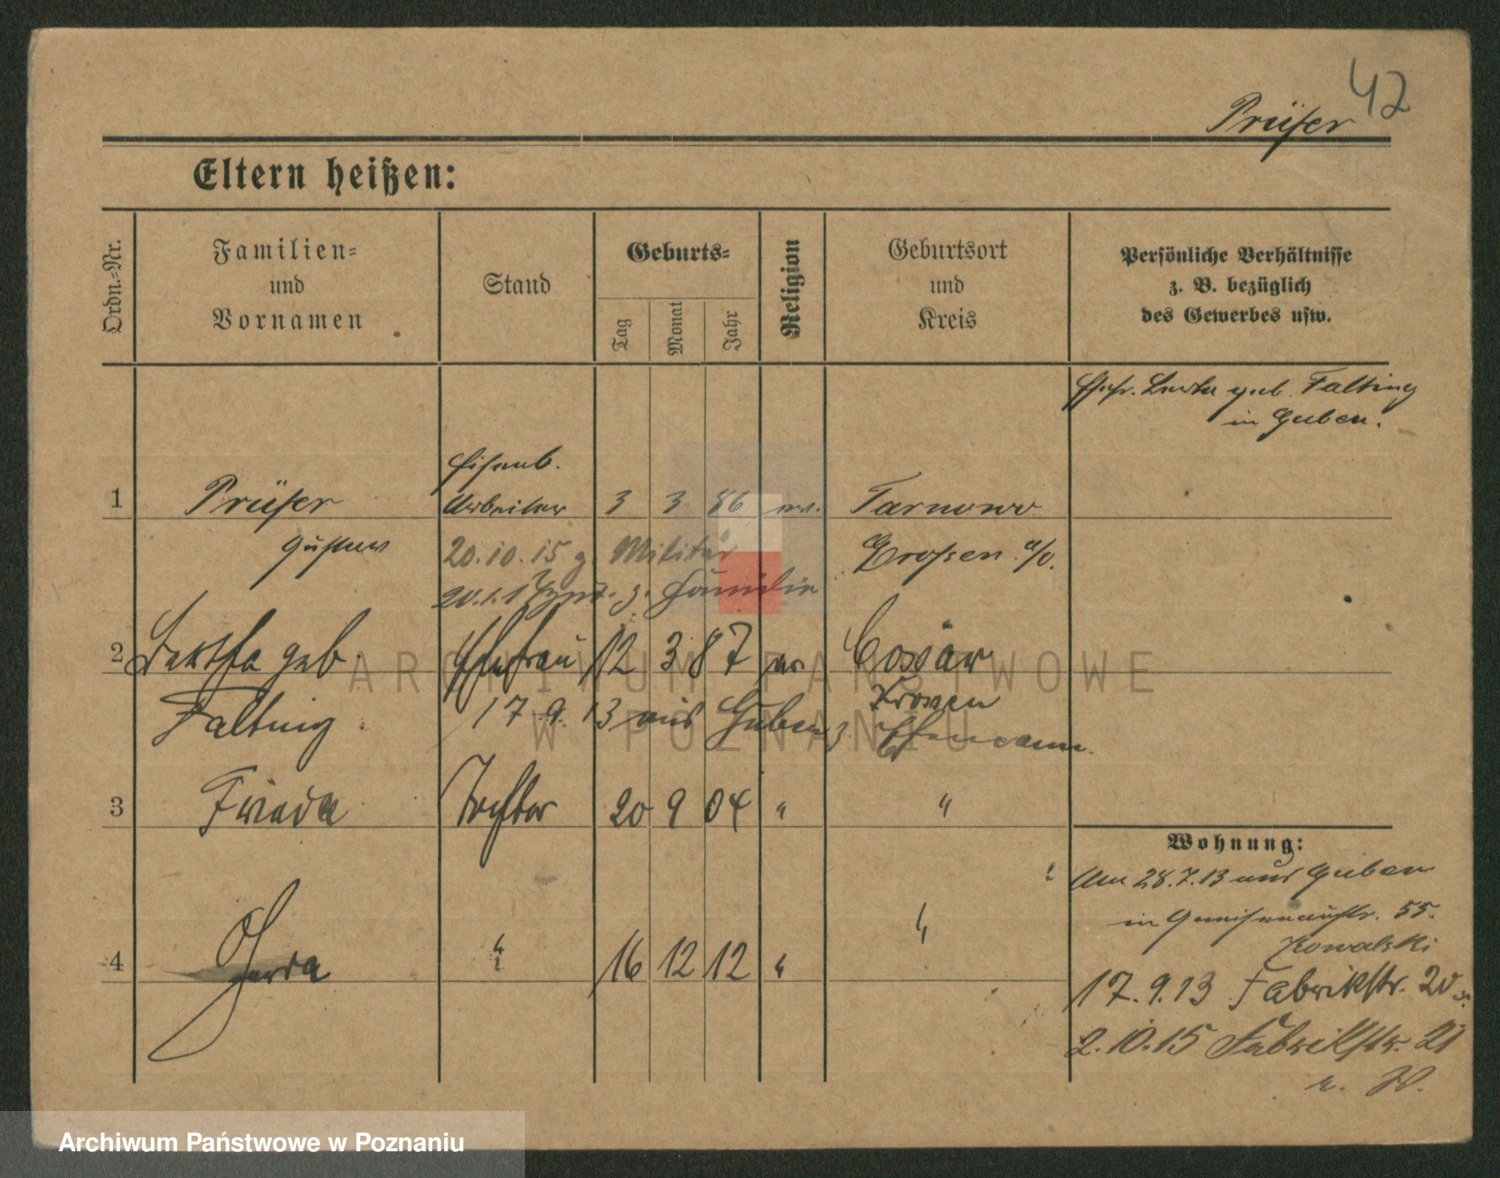 42
Prüfer
Eltern heißen:
Ordn.-Nr.
Familien- und Vornamen
Stand
Geburts-
Tag
Monat
Jahr
Religion
Geburtsort und Kreis
Persönliche Verhältnisse z. B. bezüglich des Gewerbes usw.
Ehefr. Berta geb. Falting
in Guben.
Eisenb.
1 Prüfer Arbeiter 3 3 86 ev. Tarnowo
Gustav 20.10.15 z. Militär Crossen a/o.
z. Familie
2 Bertha geb. Ehefrau 12 3 87 ev Cossar
Krossen
Falting 17.9.13 aus Guben z. Ehemann.
3 Frieda Tochter 20 9 04 " "
Wohnung:
Am 28.7.13 aus Guben
in Gneisenaustr. 55.
Kowalski
4 Gerda " 16 12 12 " "
17.9.13 Fabrikstr. 20
2.10.15 Fabrikstr. 21
ARCHIWUM PAŃSTWOWE
W POZNANIU
Archiwum Państwowe w Poznaniu